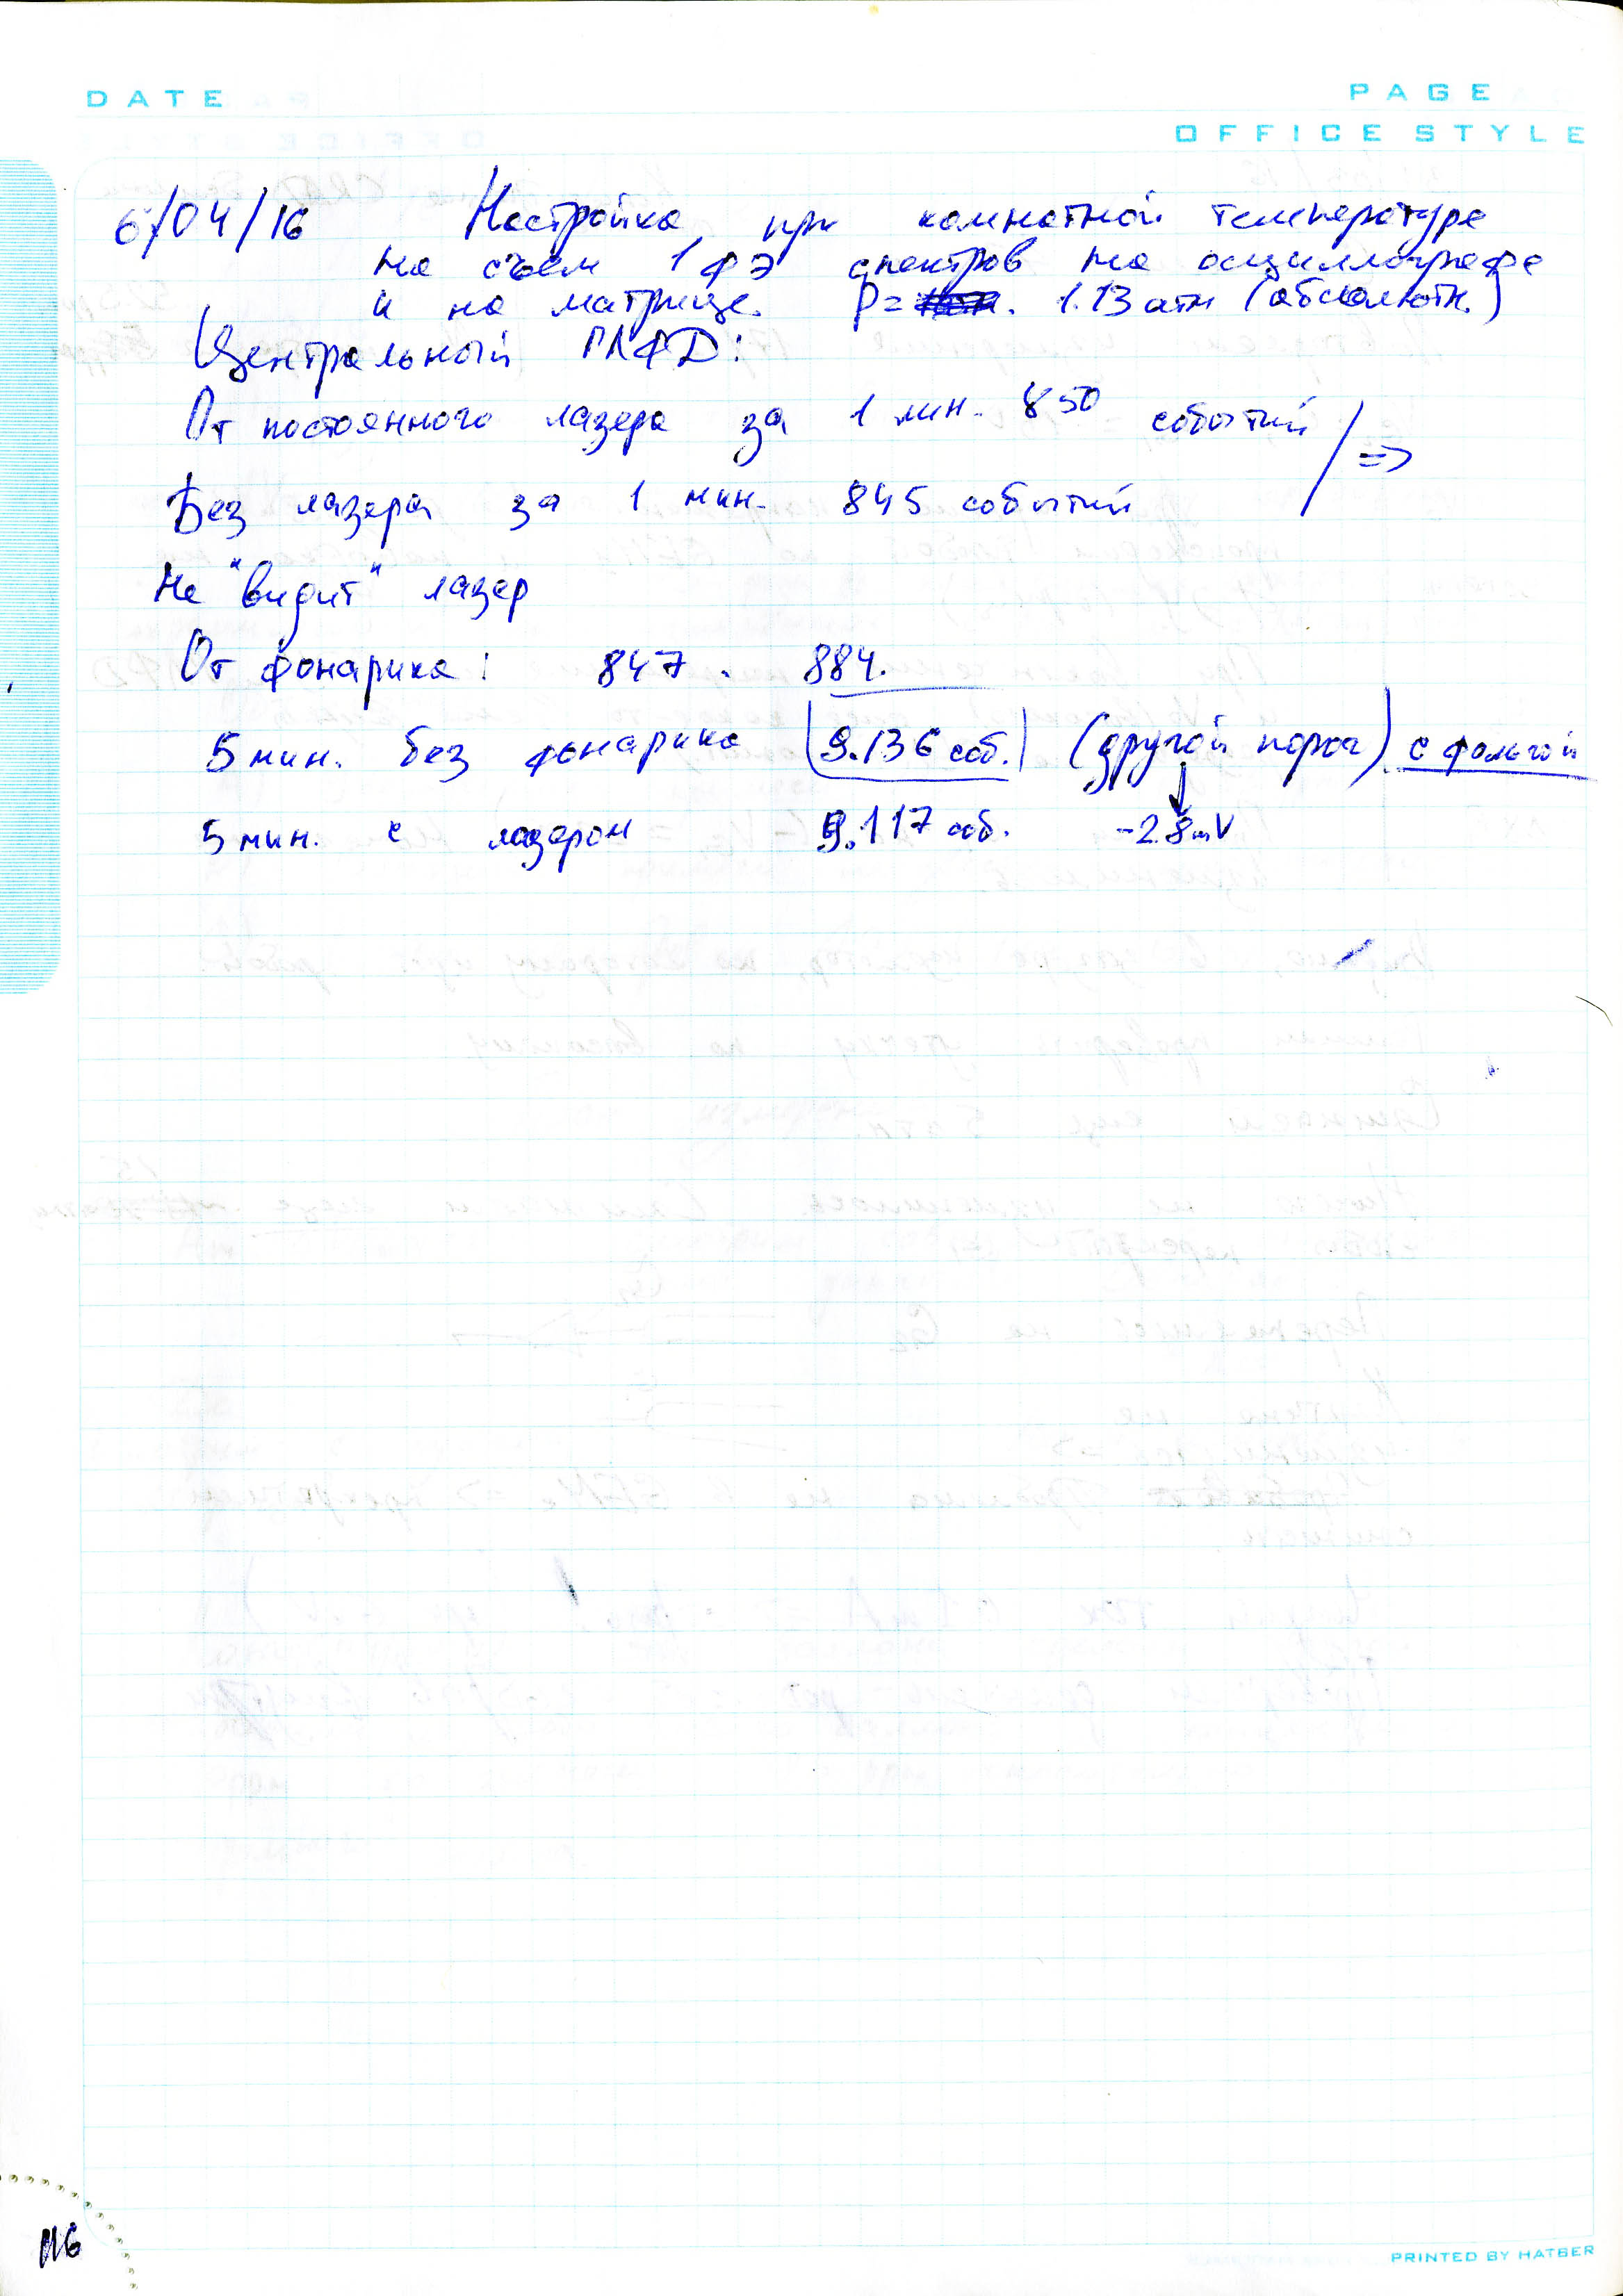 DATE
PAGE
OFFICE STYLE
6/04/16 Настройка при комнатной температуре
на съём 1 ФЭ спектров на осциллографе
и на матрице. P= 1.13 атм (абсолютн.)
Центральный ГЛФД:
От постоянного лазера за 1 мин. 850 событий
Без лазера за 1 мин. 845 событий =>
Не "видит" лазер
От фонарика: 847. 884.
5 мин. без фонарика 9.136 соб. (другой порог) с фольгой
5 мин. с лазером 9.117 соб. -2.8 mV
116
PRINTED BY HATBER